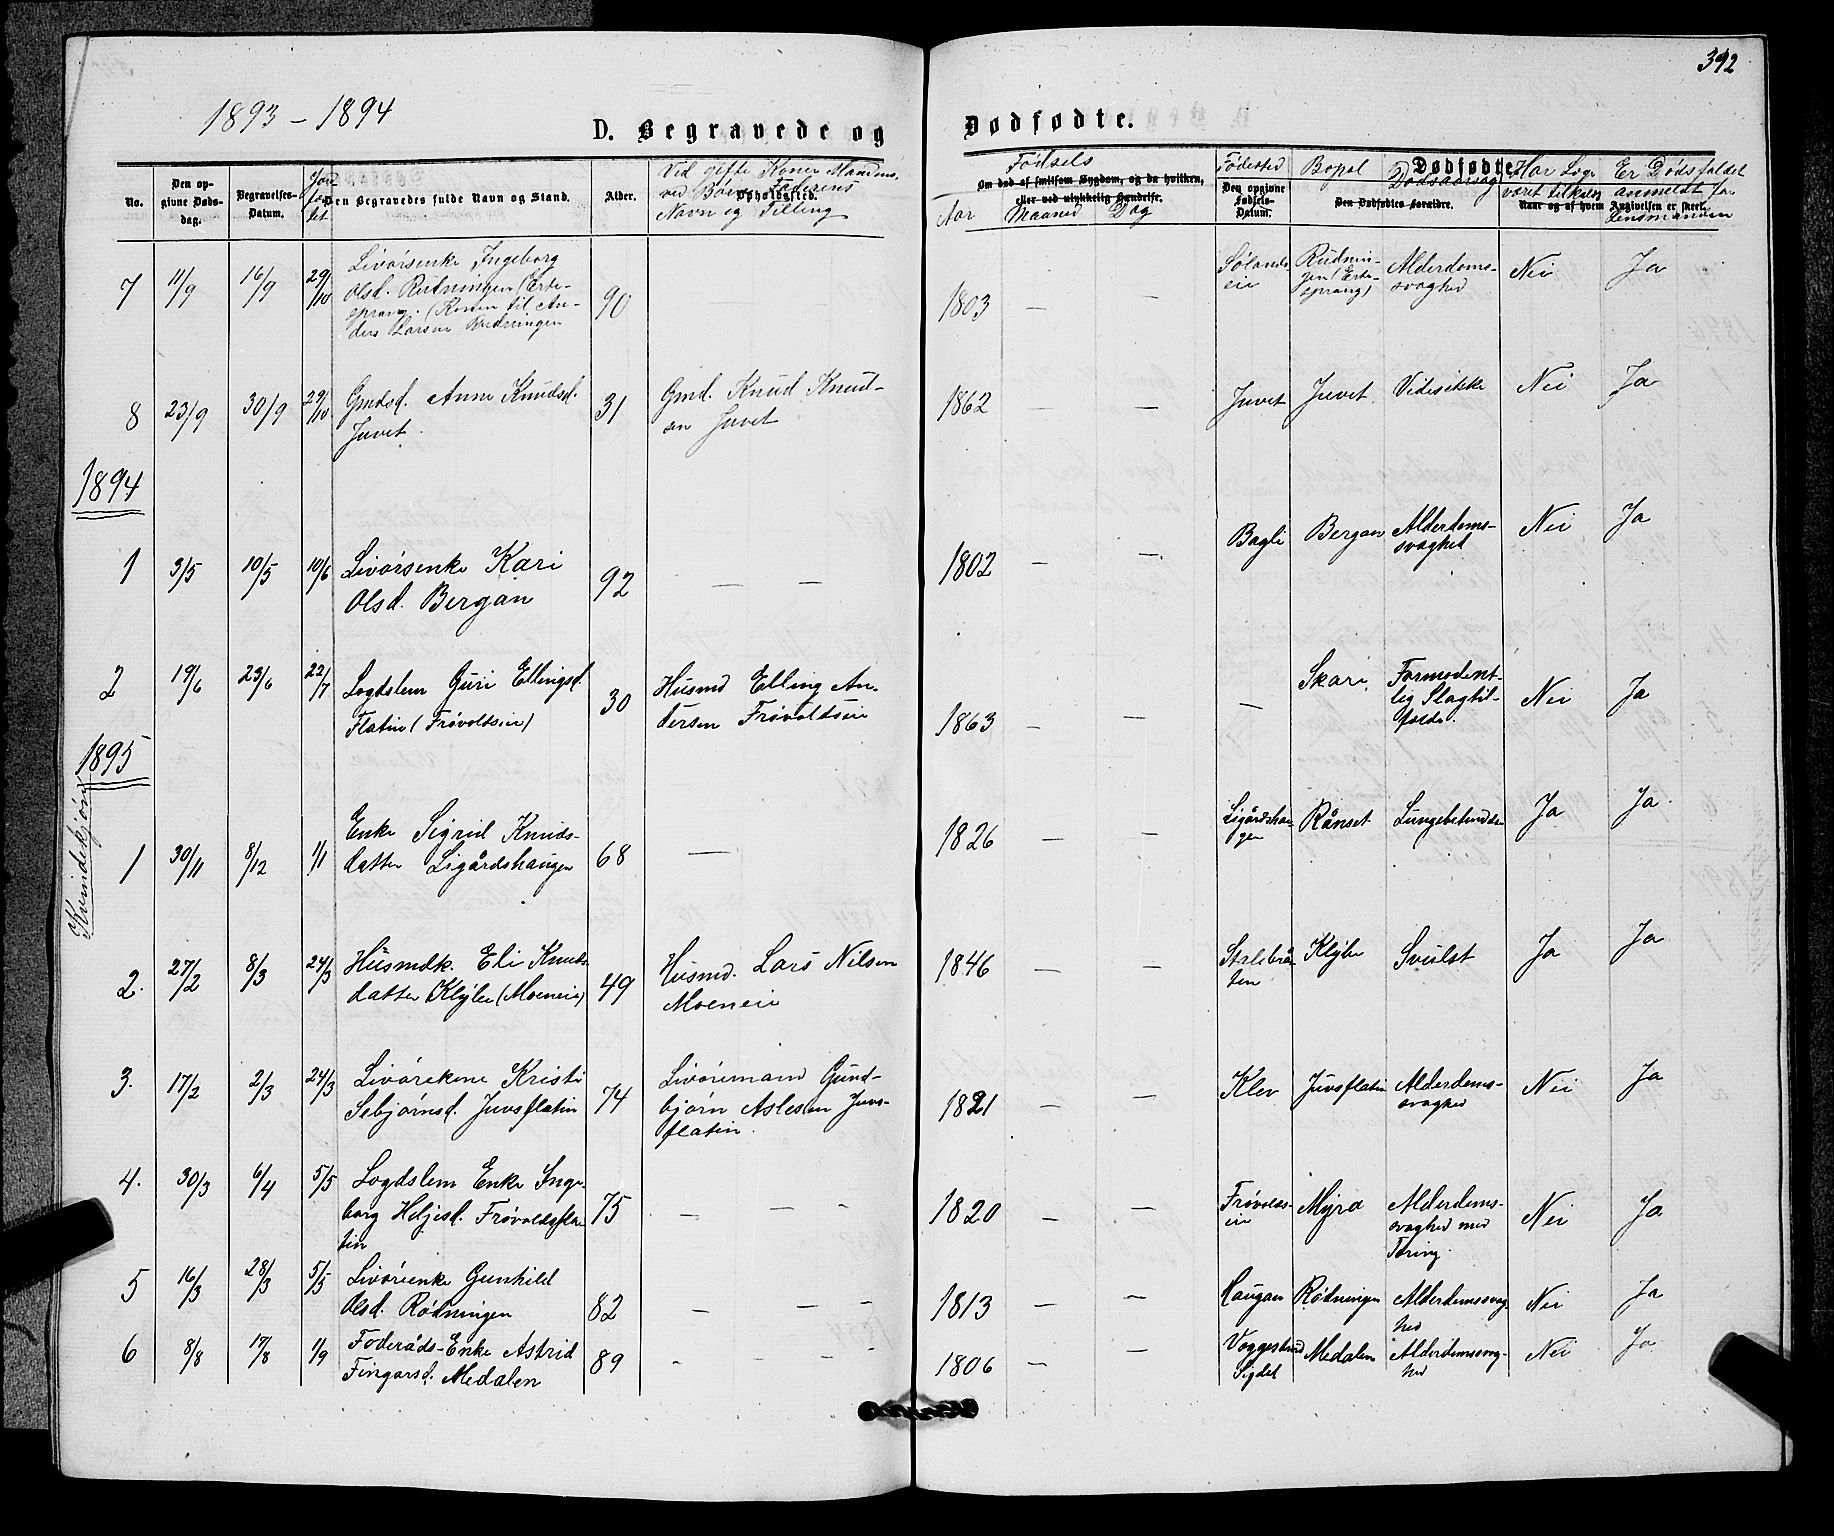 392
1893 - 1894
D. Begravede og Dødfødte.
No.
Den opgivne Dødsdag.
Begravelses-Datum.
Jordfæstet
Den Begravedes fulde Navn og Stand.
Alder.
Opholdssted.
Ved gifte Koner Mandens,
ved Børn Faderens
Navn og Stilling
Fødsels
Om død af smitsom Sygdom, og da hvilken,
eller ved ulykkelig Hændelse.
Aar Maaned Dag
Fødested
Den opgivne Fødsels-Datum.
Bopæl
Dødfødte
Den Dødfødtes Forældre.
Dødsaarsag
Har Læge
vært tilkaldt
Naar og af hvem Angivelsen er skeet.
Er Dødsfaldet
anmeldt for
Lensmanden
7 11/9 16/9 29/10
Livørsenke Ingeborg
Olsd. Rudningen (Erte-
sprang. (Konen til An-
ders Larsen Rudningen
90
1803 — —
Sølands-
eie
Rudnin-
gen (Erte-
sprang)
Alderdoms-
svaghed
Nei Ja
8 23/9 30/9 29/10
Gmdsd. Anne Knudsd.
Juvet.
31
Gmd. Knud Knud-
sen Juvet
1862 — —
Juvet Juvet Vides ikke Nei Ja
1894
1 3/5 10/5 10/6
Livørsenke Kari
Olsd. Bergan
92 — —
1802 — —
Bagli Bergan
Alderdoms-
svaghet
Nei Ja
2 19/6 23/6 22/7
Logdslem Guri Ellingsd.
Flatin (Frøvoldseie)
30
Husmd Elling An-
dersen Frøvoldseie
1863 — — —
Skari
Formodent-
lig Slagtil-
fælde.
Nei Ja
1895
Kvindekjøn
1 30/11 8/12 1/1
Enke Sigrid Knuds-
datter Ligårdshaugen
68 —
1826 — —
Ligårdshau-
gen
Rånset Lungebetændelse Ja Ja
2. 27/2 8/3 24/3
Husmdk. Eli Knuds-
datter Kløbe (Moeneie)
49
Husmd. Lars Nilsen
Moeneie
1846 — —
Stalsbrå-
ten
Kløbe Svulst Ja Ja
3. 17/2 2/3 24/3
Livørekone Kristi
Sebjørnsd. Juvsflatin
74
Livøremand Gund-
bjørn Aslesen Juvs-
flatin
1821 — —
Klev Juvsflatin
Alderdoms-
svaghed
Nei Ja
4. 30/3 6/4 5/5
Logdslem Enke Inge-
borg Heljesd. Frøvoldsfla-
tin
75 — — -
1820 — —
Frøvolds-
eie
Myra
Alderdoms-
svaghed med
Tæring.
Nei Ja
5 16/3 28/3 5/5
Livørienke Gunhild
Olsd. Rødningen
82 — — -
1813 — —
Haugan Rødningen
Alderdomssvag-
hed
Nei Ja
6 8/8 17/8 1/9
Føderåds-Enke Astrid
Fingarsd. Medalen
89 - - -
1806 — —
Voggestad
Sigdal
Medalen
Alderdomssvag-
hed
Nei Ja